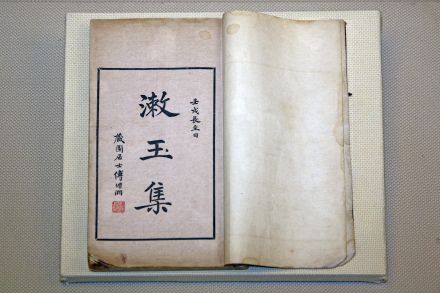 壬戌長至日
漱玉集
藏園居士傅增湘